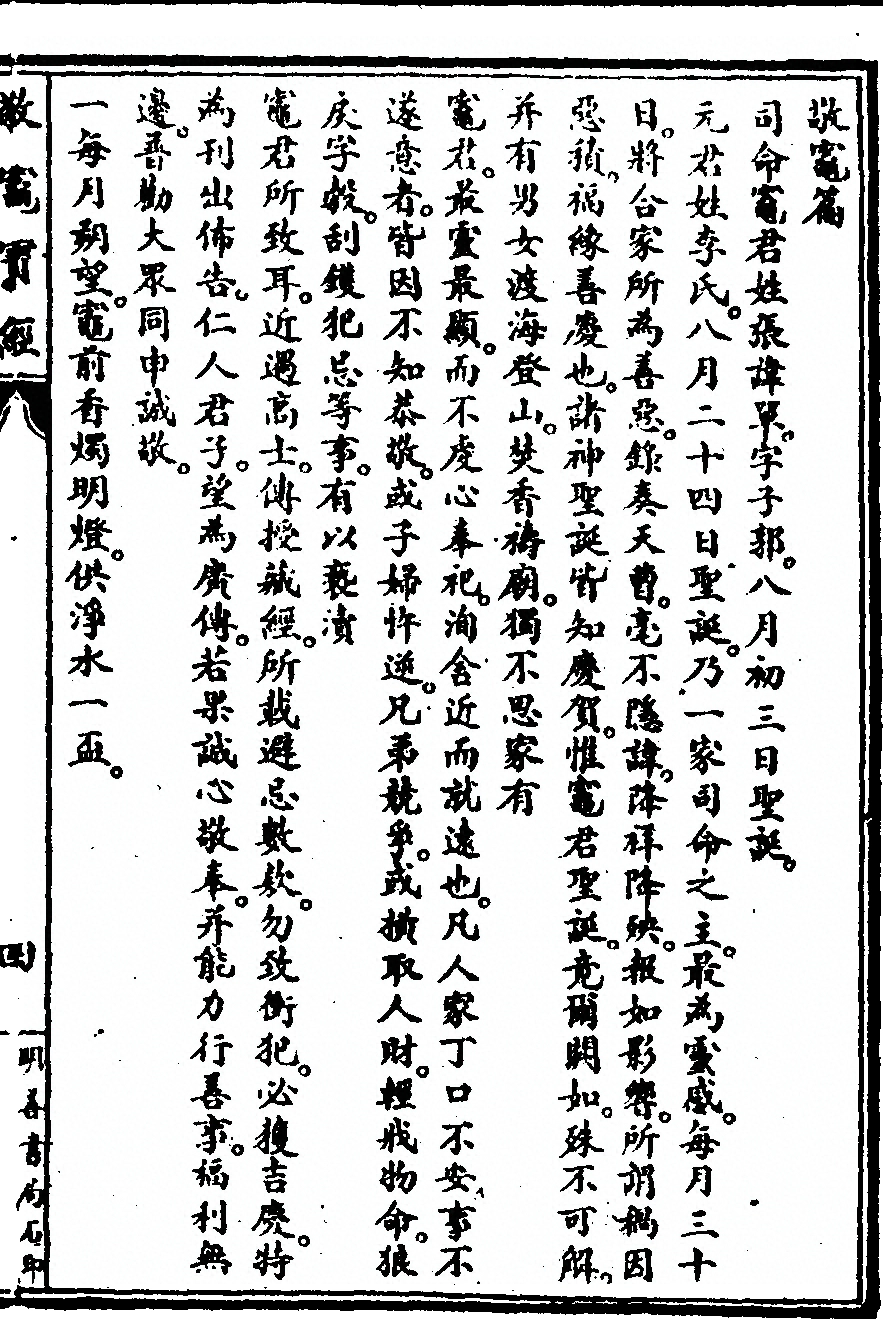 敬竈篇
司命竈君姓張諱單。字子郭。八月初三日聖誕。
元君姓李氏。八月二十四日聖誕。乃一家司命之主。最為靈感。每月三十
日。將合家所為善惡。錄奏天曹。毫不隱諱。降祥降殃。報如影響。所謂禍因
惡積。福緣善慶也。諸神聖誕皆知慶賀。惟竈君聖誕。竟爾闕如。殊不可解。
并有男女渡海登山。焚香禱廟。獨不思家有
竈君。最靈最顯。而不虔心奉祀。洵舍近而就遠也。凡人家丁口不安。事不
遂意者。皆因不知恭敬。或子婦忤逆。兄弟競爭。或橫取人財。輕戕物命。狼
戾字穀。刮鑊犯忌等事。有以褻瀆
竈君所致耳。近遇高士。傳授藏經。所載避忌數款。勿致衝犯。必獲吉慶。特
為刊出佈告。仁人君子。望為廣傳。若果誠心敬奉。并能力行善事。福利無
邊。普勸大眾同申誠敬。
一每月朔望。竈前香燭明燈。供淨水一盃。
敬竈寶經
四
明善書局石印